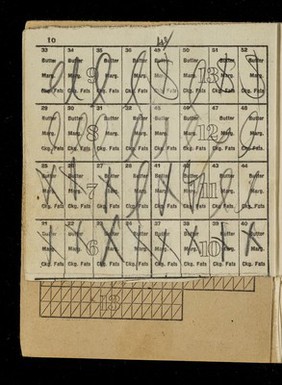 10
33 34 35 36 49 50 51 52
Butter Butter Butter Butter Butter Butter Butter Butter
9 13
Marg. Marg. Marg. Marg. Marg. Marg. Marg. Marg.
Ckg. Fats Ckg. Fats Ckg. Fats Ckg. Fats Ckg. Fats Ckg. Fats Ckg. Fats Ckg. Fats
29 30 31 32 45 46 47 48
Butter Butter Butter Butter Butter Butter Butter Butter
8 12
Marg. Marg. Marg. Marg. Marg. Marg. Marg. Marg.
Ckg. Fats Ckg. Fats Ckg. Fats Ckg. Fats Ckg. Fats Ckg. Fats Ckg. Fats Ckg. Fats
25 26 27 28 41 42 43 44
Butter Butter Butter Butter Butter Butter Butter Butter
7 11
Marg. Marg. Marg. Marg. Marg. Marg. Marg. Marg.
Ckg. Fats Ckg. Fats Ckg. Fats Ckg. Fats Ckg. Fats Ckg. Fats Ckg. Fats Ckg. Fats
21 22 23 24 37 38 39 40
Butter Butter Butter Butter Butter Butter Butter Butter
6 10
Marg. Marg. Marg. Marg. Marg. Marg. Marg. Marg.
Ckg. Fats Ckg. Fats Ckg. Fats Ckg. Fats Ckg. Fats Ckg. Fats Ckg. Fats Ckg. Fats